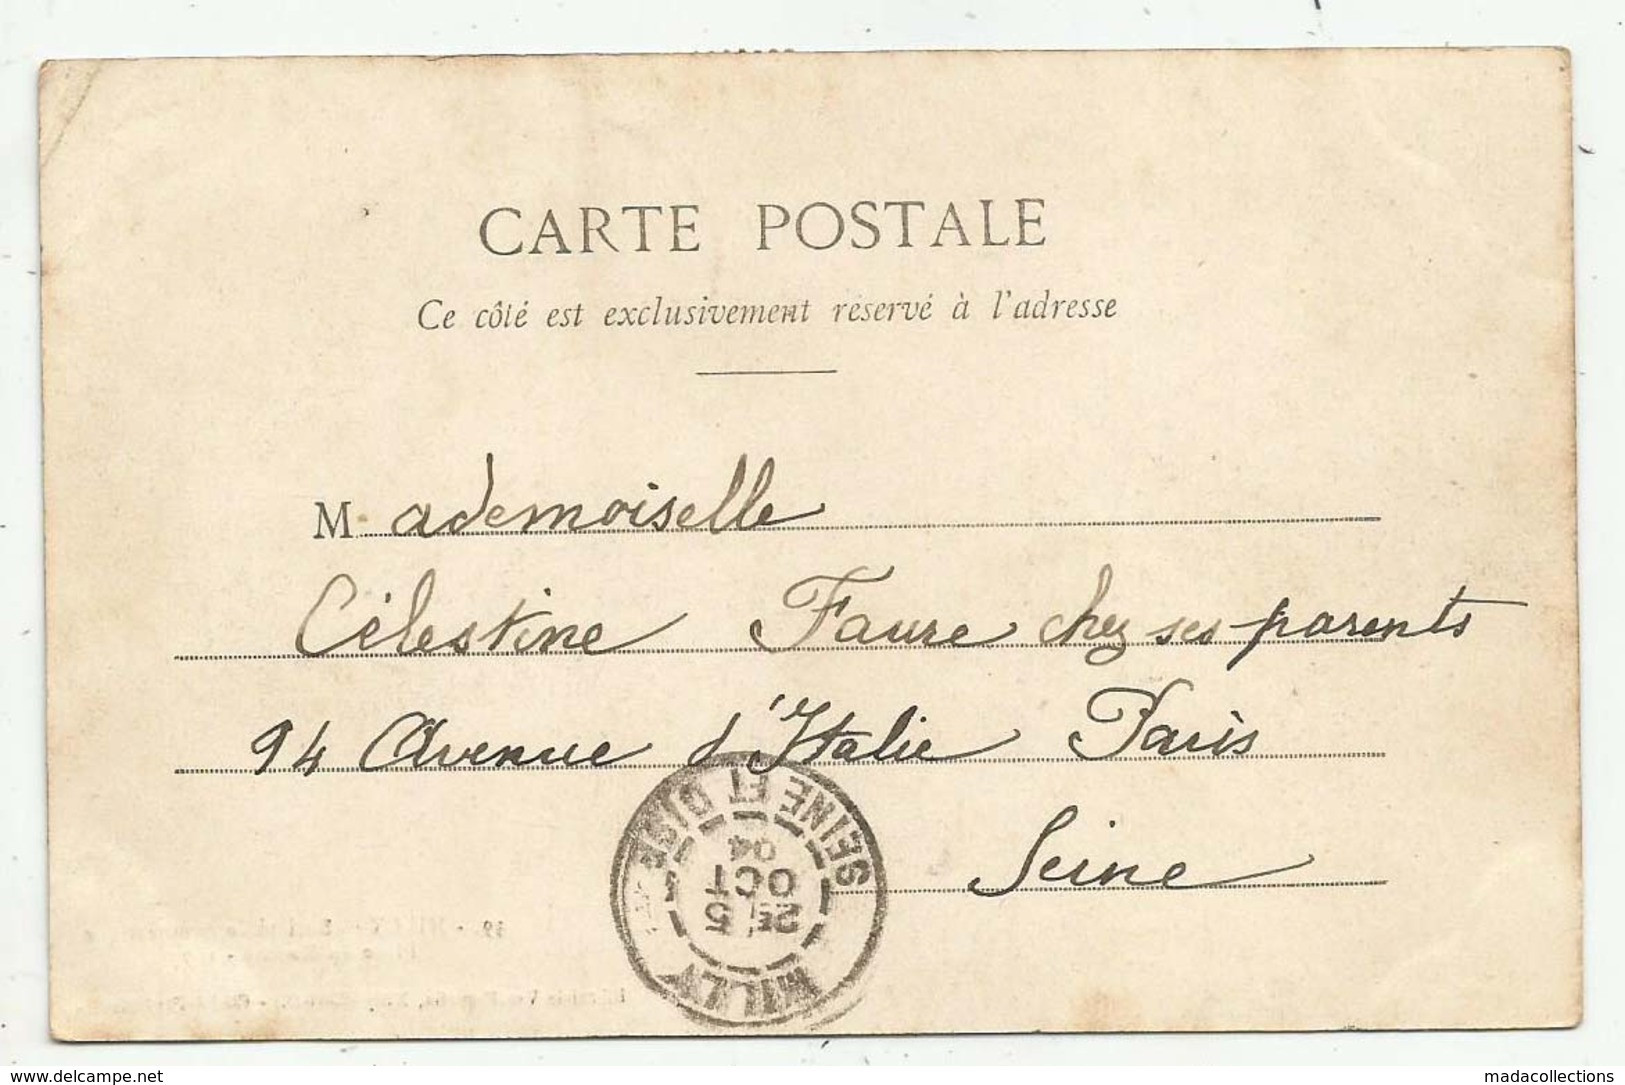 CARTE POSTALE
Ce côté est exclusivement réservé à l'adresse
Mademoiselle
Célestine Faure chez ses parents
94 Avenue d'Italie Paris
Seine
MILLY
SEINE ET OISE
5
OCT
04
www.delcampe.net
madacollections